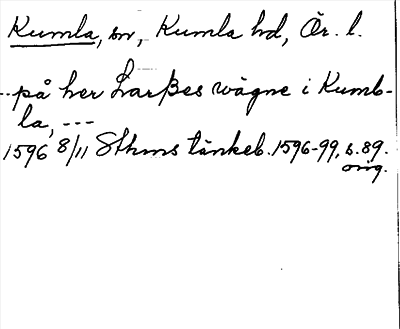 Kumla, sn, Kumla hd, Ör. l.
--på her Larßes wägne i Kumb-
la, ---
1596 8/11 Sthms tänkeb. 1596-99, s. 89.
orig.